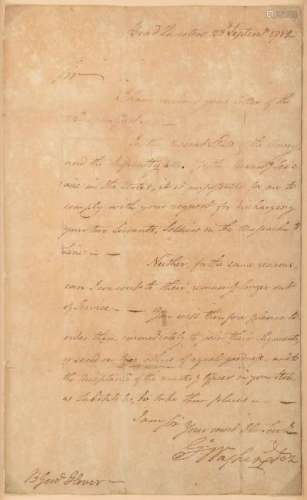 Head Quarters 23d Septemr 1782
Sir
I have received your letter of the
In the present State of the Army
and the
ons in the State, it is impossible for me to
comply with your request for discharging
your two Servants, Soldiers in the Massachu
Line. —
Neither, for the same reasons,
can I consent to their remaining longer out
of Service. — You will therefore please to
order them immediately to join their Regiments,
or send on two others of equal goodness, and to
the acceptance of the muster Officer in your State,
as substitutes, to take their places —
I am Sir
Your most Obt Servt
Go Washington
B. Genl Glover —